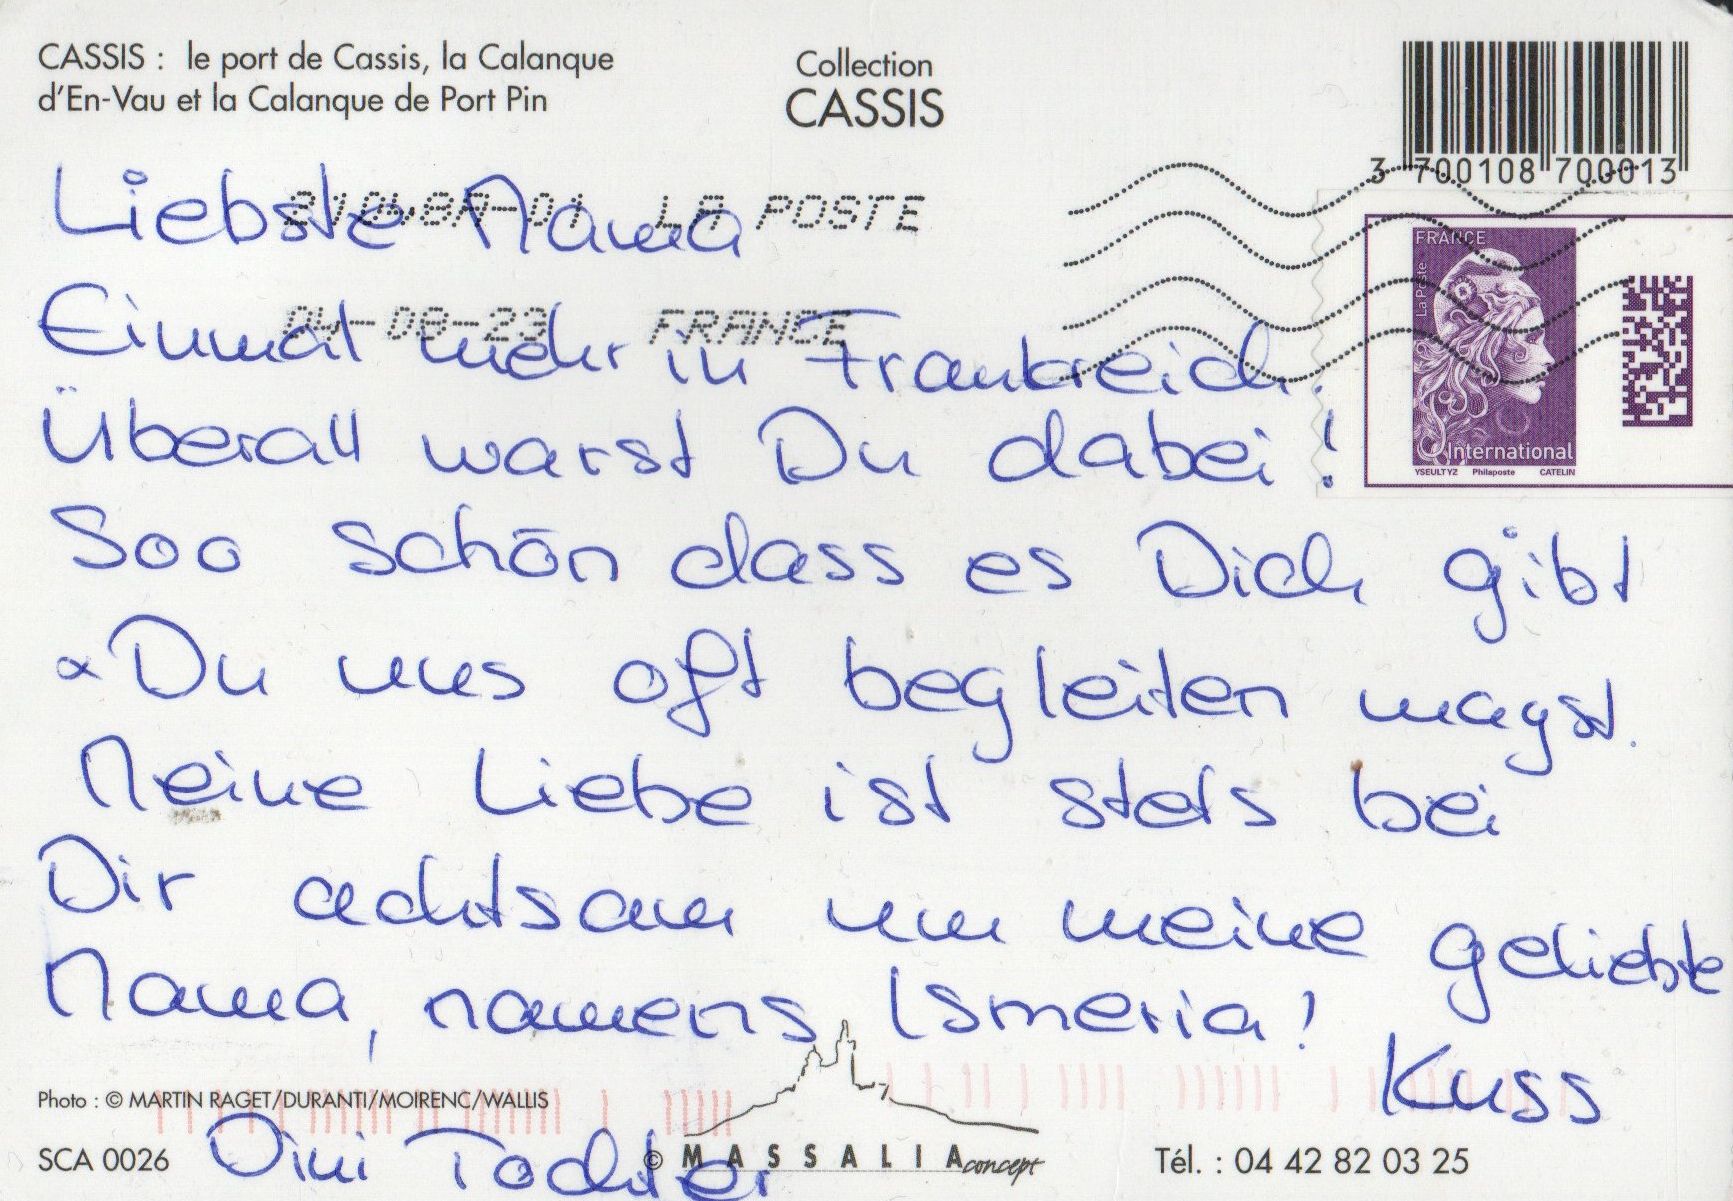 CASSIS : le port de Cassis, la Calanque
d'En-Vau et la Calanque de Port Pin
Collection
CASSIS
3 700108 700013
LA POSTE
04-08-23 FRANCE
FRANCE
La Poste
International
YSEULTYZ Philaposte CATELIN
Liebste Mama
Einmal mehr in Frankreich.
Überall warst Du dabei!
Soo schön dass es Dich gibt
& Du uns oft begleiten magst.
Meine Liebe ist stets bei
Dir achtsam um meine geliebte
Mama, namens Ismeria!
Kuss
Dini Tochter
Photo : © MARTIN RAGET/DURANTI/MOIRENC/WALLIS
SCA 0026
© MASSALIA concept
Tél. : 04 42 82 03 25